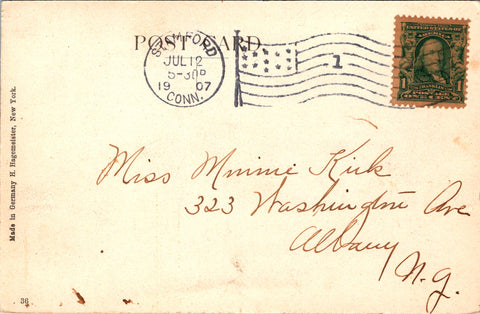 POST CARD.
STAMFORD
JUL 12
5-30P
1907
CONN.
1
UNITED STATES OF AMERICA
1 1
Made in Germany H. Hagemeister, New York.
Miss Minnie Kirk
323 Washington Ave
Albany
N.Y.
36